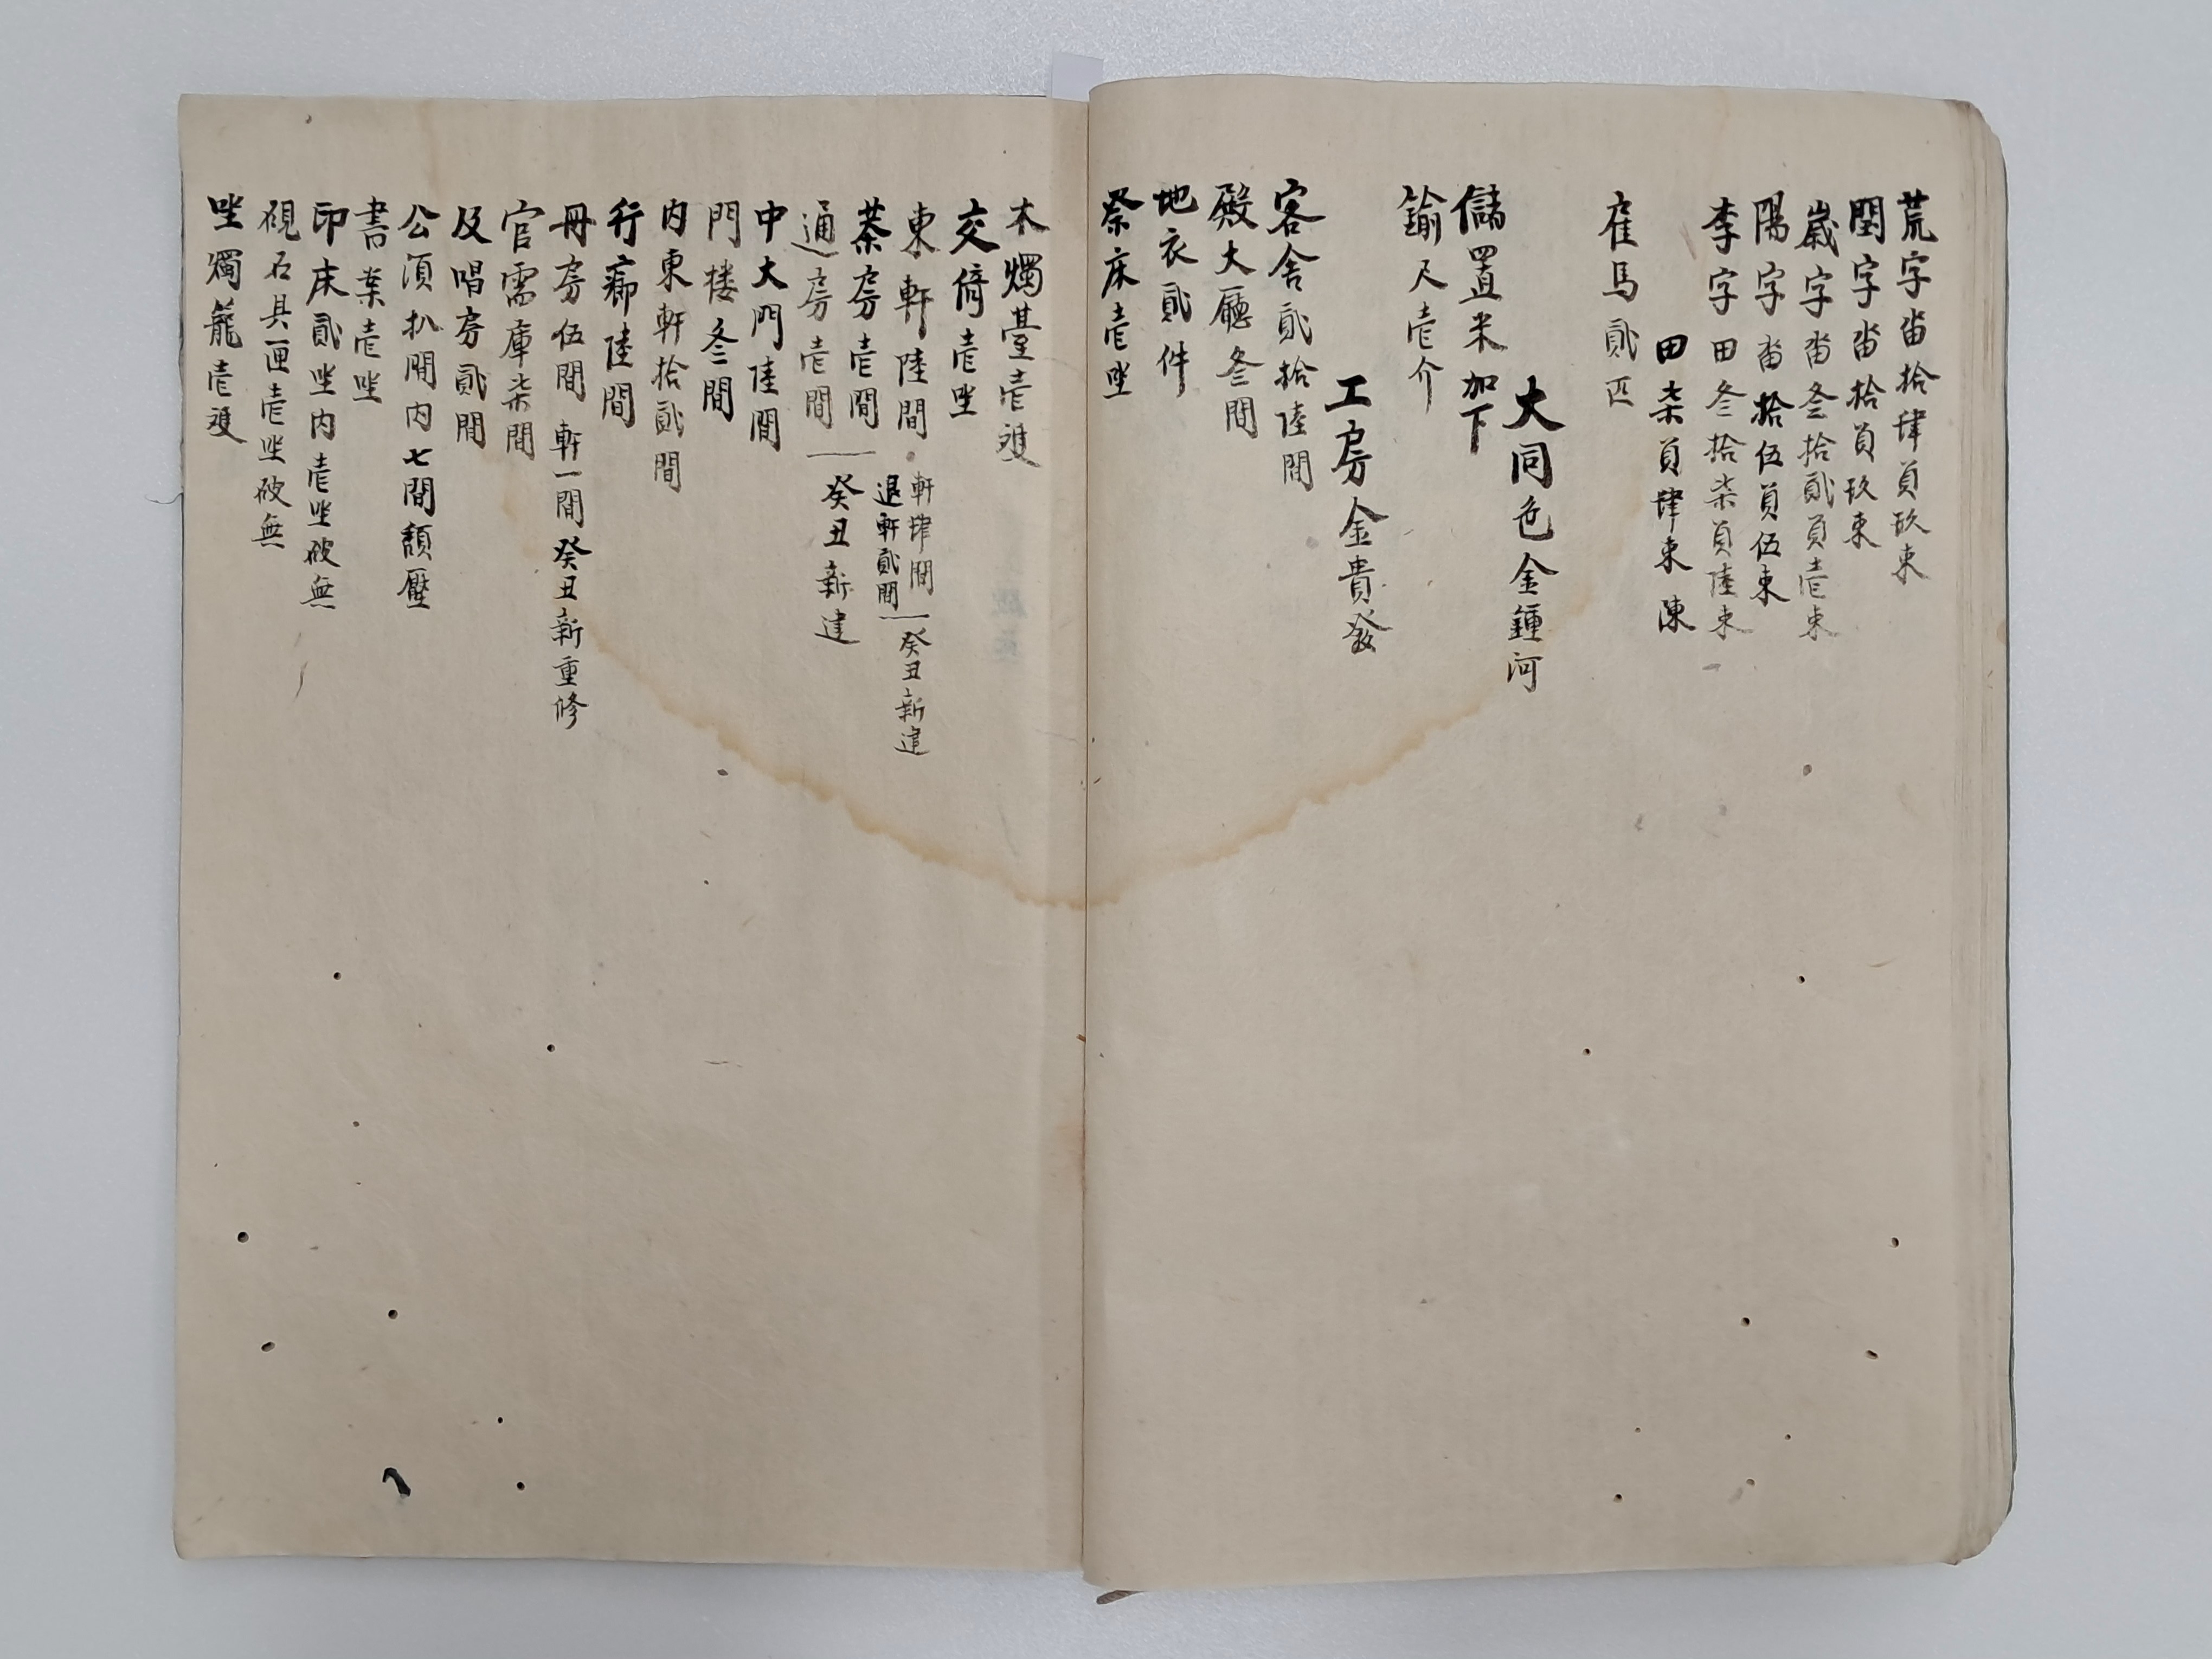 荒字畓拾肆負玖束
閏字畓拾負玖束
歲字畓叄拾貳負壹束
陽字畓拾伍負伍束
李字田叄拾柒負陸束
田柒負肆束 陳
隺馬貳匹
大同色金鍾河
儲置米加下
鍮尺壹介
工房金貴發
客舍貳拾陸間
殿大廳叄間
地衣貳件
祭床壹坐
木燭臺壹雙
交倚壹坐
東軒陸間 軒肆間 退軒貳間 癸丑新建
茶房壹間
通房壹間 癸丑新建
中大門陸間
門樓叄間
內東軒拾貳間
行廊陸間
冊房伍間 軒一間 癸丑新重修
官需庫柒間
及唱房貳間
公須捌間內七間頹壓
書案壹坐
印床貳坐內壹坐破無
硯石具匣壹坐破無
坐燭籠壹雙